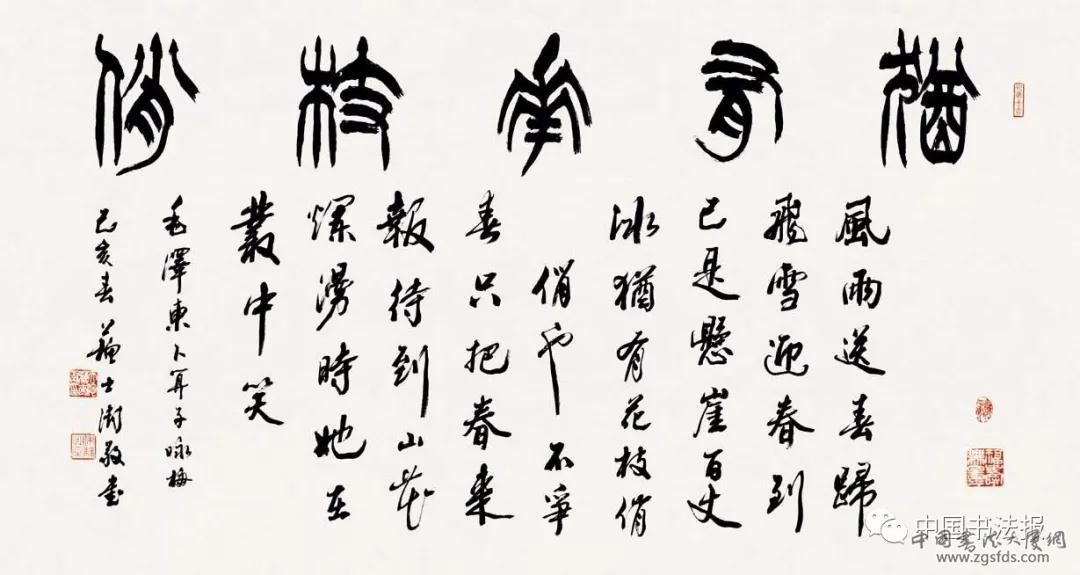 猶有花枝俏
風雨送春歸
飛雪迎春到
已是懸崖百丈
冰猶有花枝俏
俏也不爭
春只把春來
報待到山花
爛漫時她在
叢中笑
毛澤東卜算子咏梅
己亥春蘇士澍敬書
中国书法报
中國書法大廈網
www.zgsfds.com